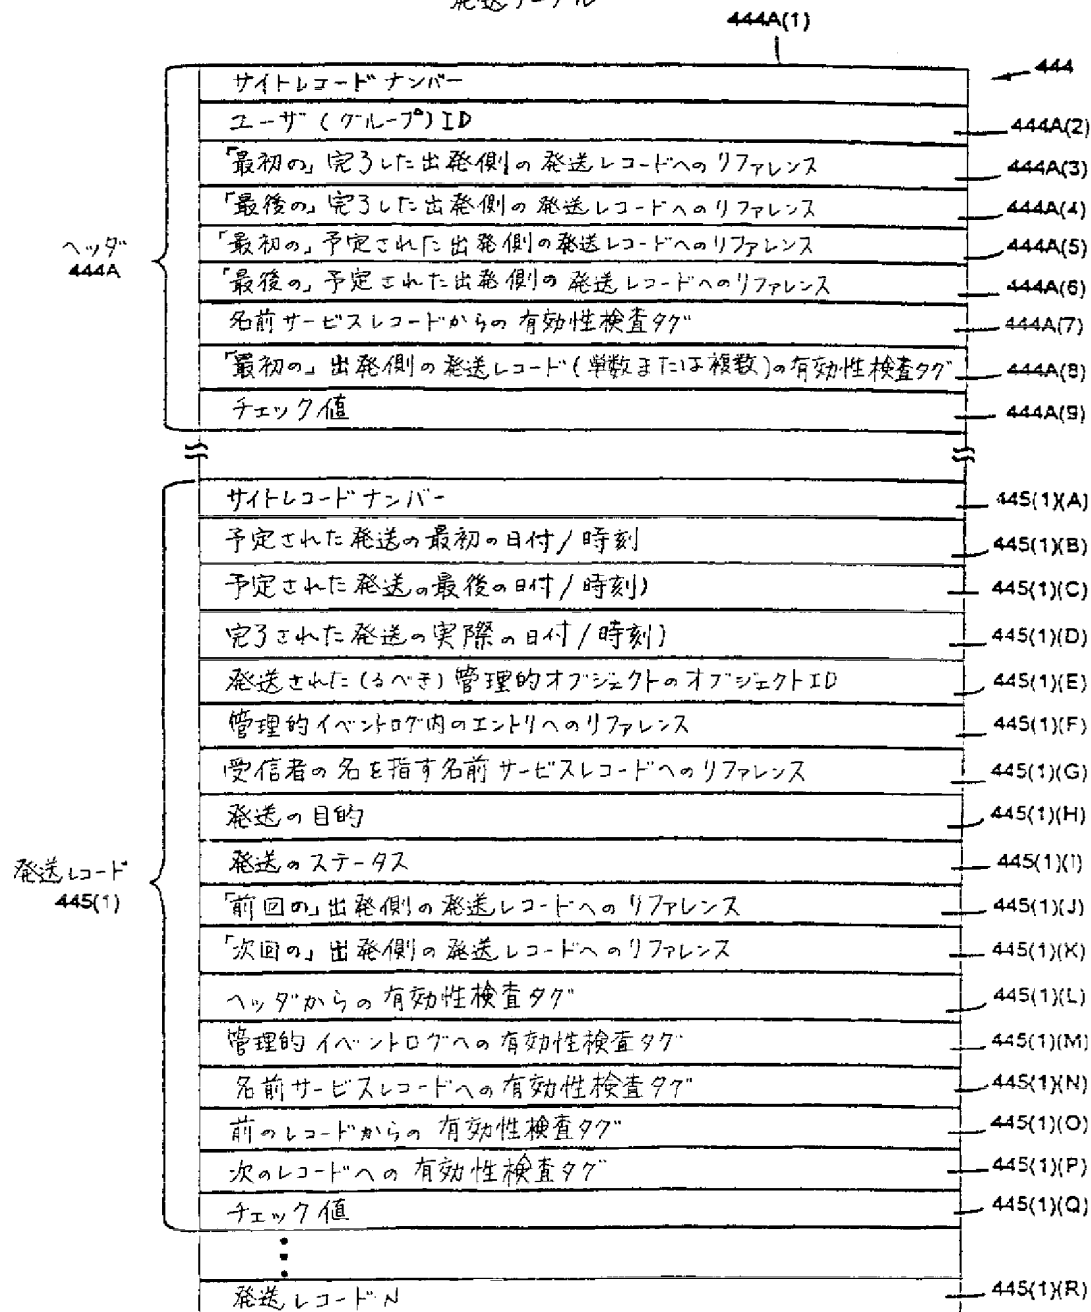 発送テーブル
444A(1)
444
サイトレコードナンバー
ユーザ(グループ)ID 444A(2)
「最初の」完了した出発側の発送レコードへのリファレンス 444A(3)
「最後の」完了した出発側の発送レコードへのリファレンス 444A(4)
「最初の」予定された出発側の発送レコードへのリファレンス 444A(5)
ヘッダ
444A
「最後の」予定された出発側の発送レコードへのリファレンス 444A(6)
名前サービスレコードからの有効性検査タグ 444A(7)
「最初の」出発側の発送レコード(単数または複数)の有効性検査タグ 444A(8)
チェック値 444A(9)
サイトレコードナンバー 445(1)(A)
予定された発送の最初の日付/時刻 445(1)(B)
予定された発送の最後の日付/時刻) 445(1)(C)
完了された発送の実際の日付/時刻) 445(1)(D)
発送された(るべき)管理的オブジェクトのオブジェクトID 445(1)(E)
管理的イベントログ内のエントリへのリファレンス 445(1)(F)
受信者の名を指す名前サービスレコードへのリファレンス 445(1)(G)
発送の目的 445(1)(H)
発送のステータス 445(1)(I)
発送レコード
445(1)
「前回の」出発側の発送レコードへのリファレンス 445(1)(J)
「次回の」出発側の発送レコードへのリファレンス 445(1)(K)
ヘッダからの有効性検査タグ 445(1)(L)
管理的イベントログへの有効性検査タグ 445(1)(M)
名前サービスレコードへの有効性検査タグ 445(1)(N)
前のレコードからの有効性検査タグ 445(1)(O)
次のレコードへの有効性検査タグ 445(1)(P)
チェック値 445(1)(Q)
発送レコードN 445(1)(R)